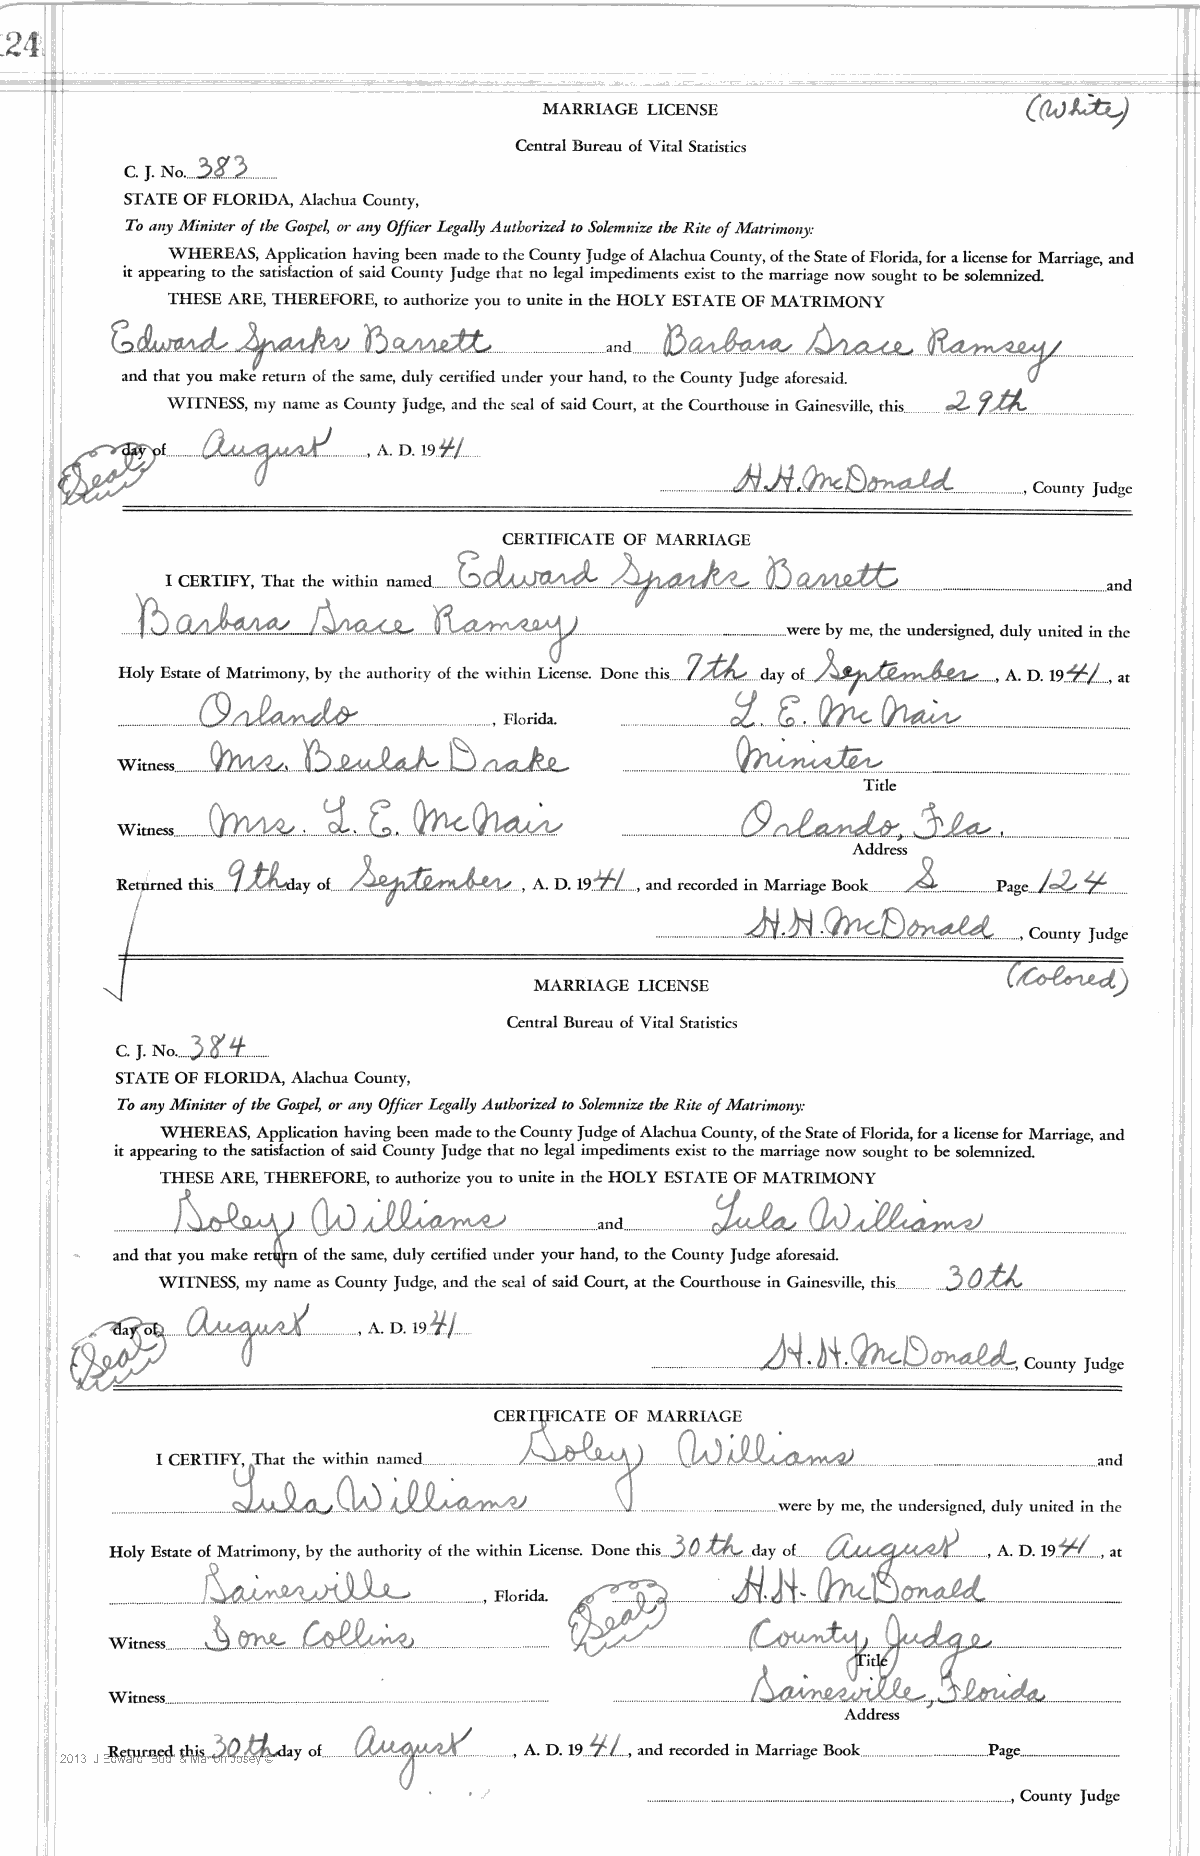 124
MARRIAGE LICENSE (White)
Central Bureau of Vital Statistics
C. J. No. 383
STATE OF FLORIDA, Alachua County,
To any Minister of the Gospel, or any Officer Legally Authorized to Solemnize the Rite of Matrimony:
WHEREAS, Application having been made to the County Judge of Alachua County, of the State of Florida, for a license for Marriage, and
it appearing to the satisfaction of said County Judge that no legal impediments exist to the marriage now sought to be solemnized.
THESE ARE, THEREFORE, to authorize you to unite in the HOLY ESTATE OF MATRIMONY
Edward Sparks Barrett and Barbara Grace Ramsey
and that you make return of the same, duly certified under your hand, to the County Judge aforesaid.
WITNESS, my name as County Judge, and the seal of said Court, at the Courthouse in Gainesville, this 29th
day of August, A. D. 1941
(Seal)
H.H. McDonald, County Judge
CERTIFICATE OF MARRIAGE
I CERTIFY, That the within named Edward Sparks Barrett and
Barbara Grace Ramsey were by me, the undersigned, duly united in the
Holy Estate of Matrimony, by the authority of the within License. Done this 7th day of September, A. D. 1941, at
Orlando, Florida. L. E. McNair
Witness Mrs. Beulah Drake Minister
Title
Witness Mrs. L. E. McNair Orlando, Fla.
Address
Returned this 9th day of September, A. D. 1941, and recorded in Marriage Book S Page 124
H.H. McDonald, County Judge
MARRIAGE LICENSE (Colored)
Central Bureau of Vital Statistics
C. J. No. 384
STATE OF FLORIDA, Alachua County,
To any Minister of the Gospel, or any Officer Legally Authorized to Solemnize the Rite of Matrimony:
WHEREAS, Application having been made to the County Judge of Alachua County, of the State of Florida, for a license for Marriage, and
it appearing to the satisfaction of said County Judge that no legal impediments exist to the marriage now sought to be solemnized.
THESE ARE, THEREFORE, to authorize you to unite in the HOLY ESTATE OF MATRIMONY
Soley Williams and Lula Williams
and that you make return of the same, duly certified under your hand, to the County Judge aforesaid.
WITNESS, my name as County Judge, and the seal of said Court, at the Courthouse in Gainesville, this 30th
day of August, A. D. 1941
(Seal)
H. H. McDonald, County Judge
CERTIFICATE OF MARRIAGE
I CERTIFY, That the within named Soley Williams and
Lula Williams were by me, the undersigned, duly united in the
Holy Estate of Matrimony, by the authority of the within License. Done this 30th day of August, A. D. 1941, at
Gainesville, Florida. (Seal) H.H. McDonald
Witness Gone Collins County Judge
Title
Witness Gainesville, Florida
Address
Returned this 30th day of August, A. D. 1941, and recorded in Marriage Book Page
2013 J Edward "Bud" & Marion Josey ©
, County Judge